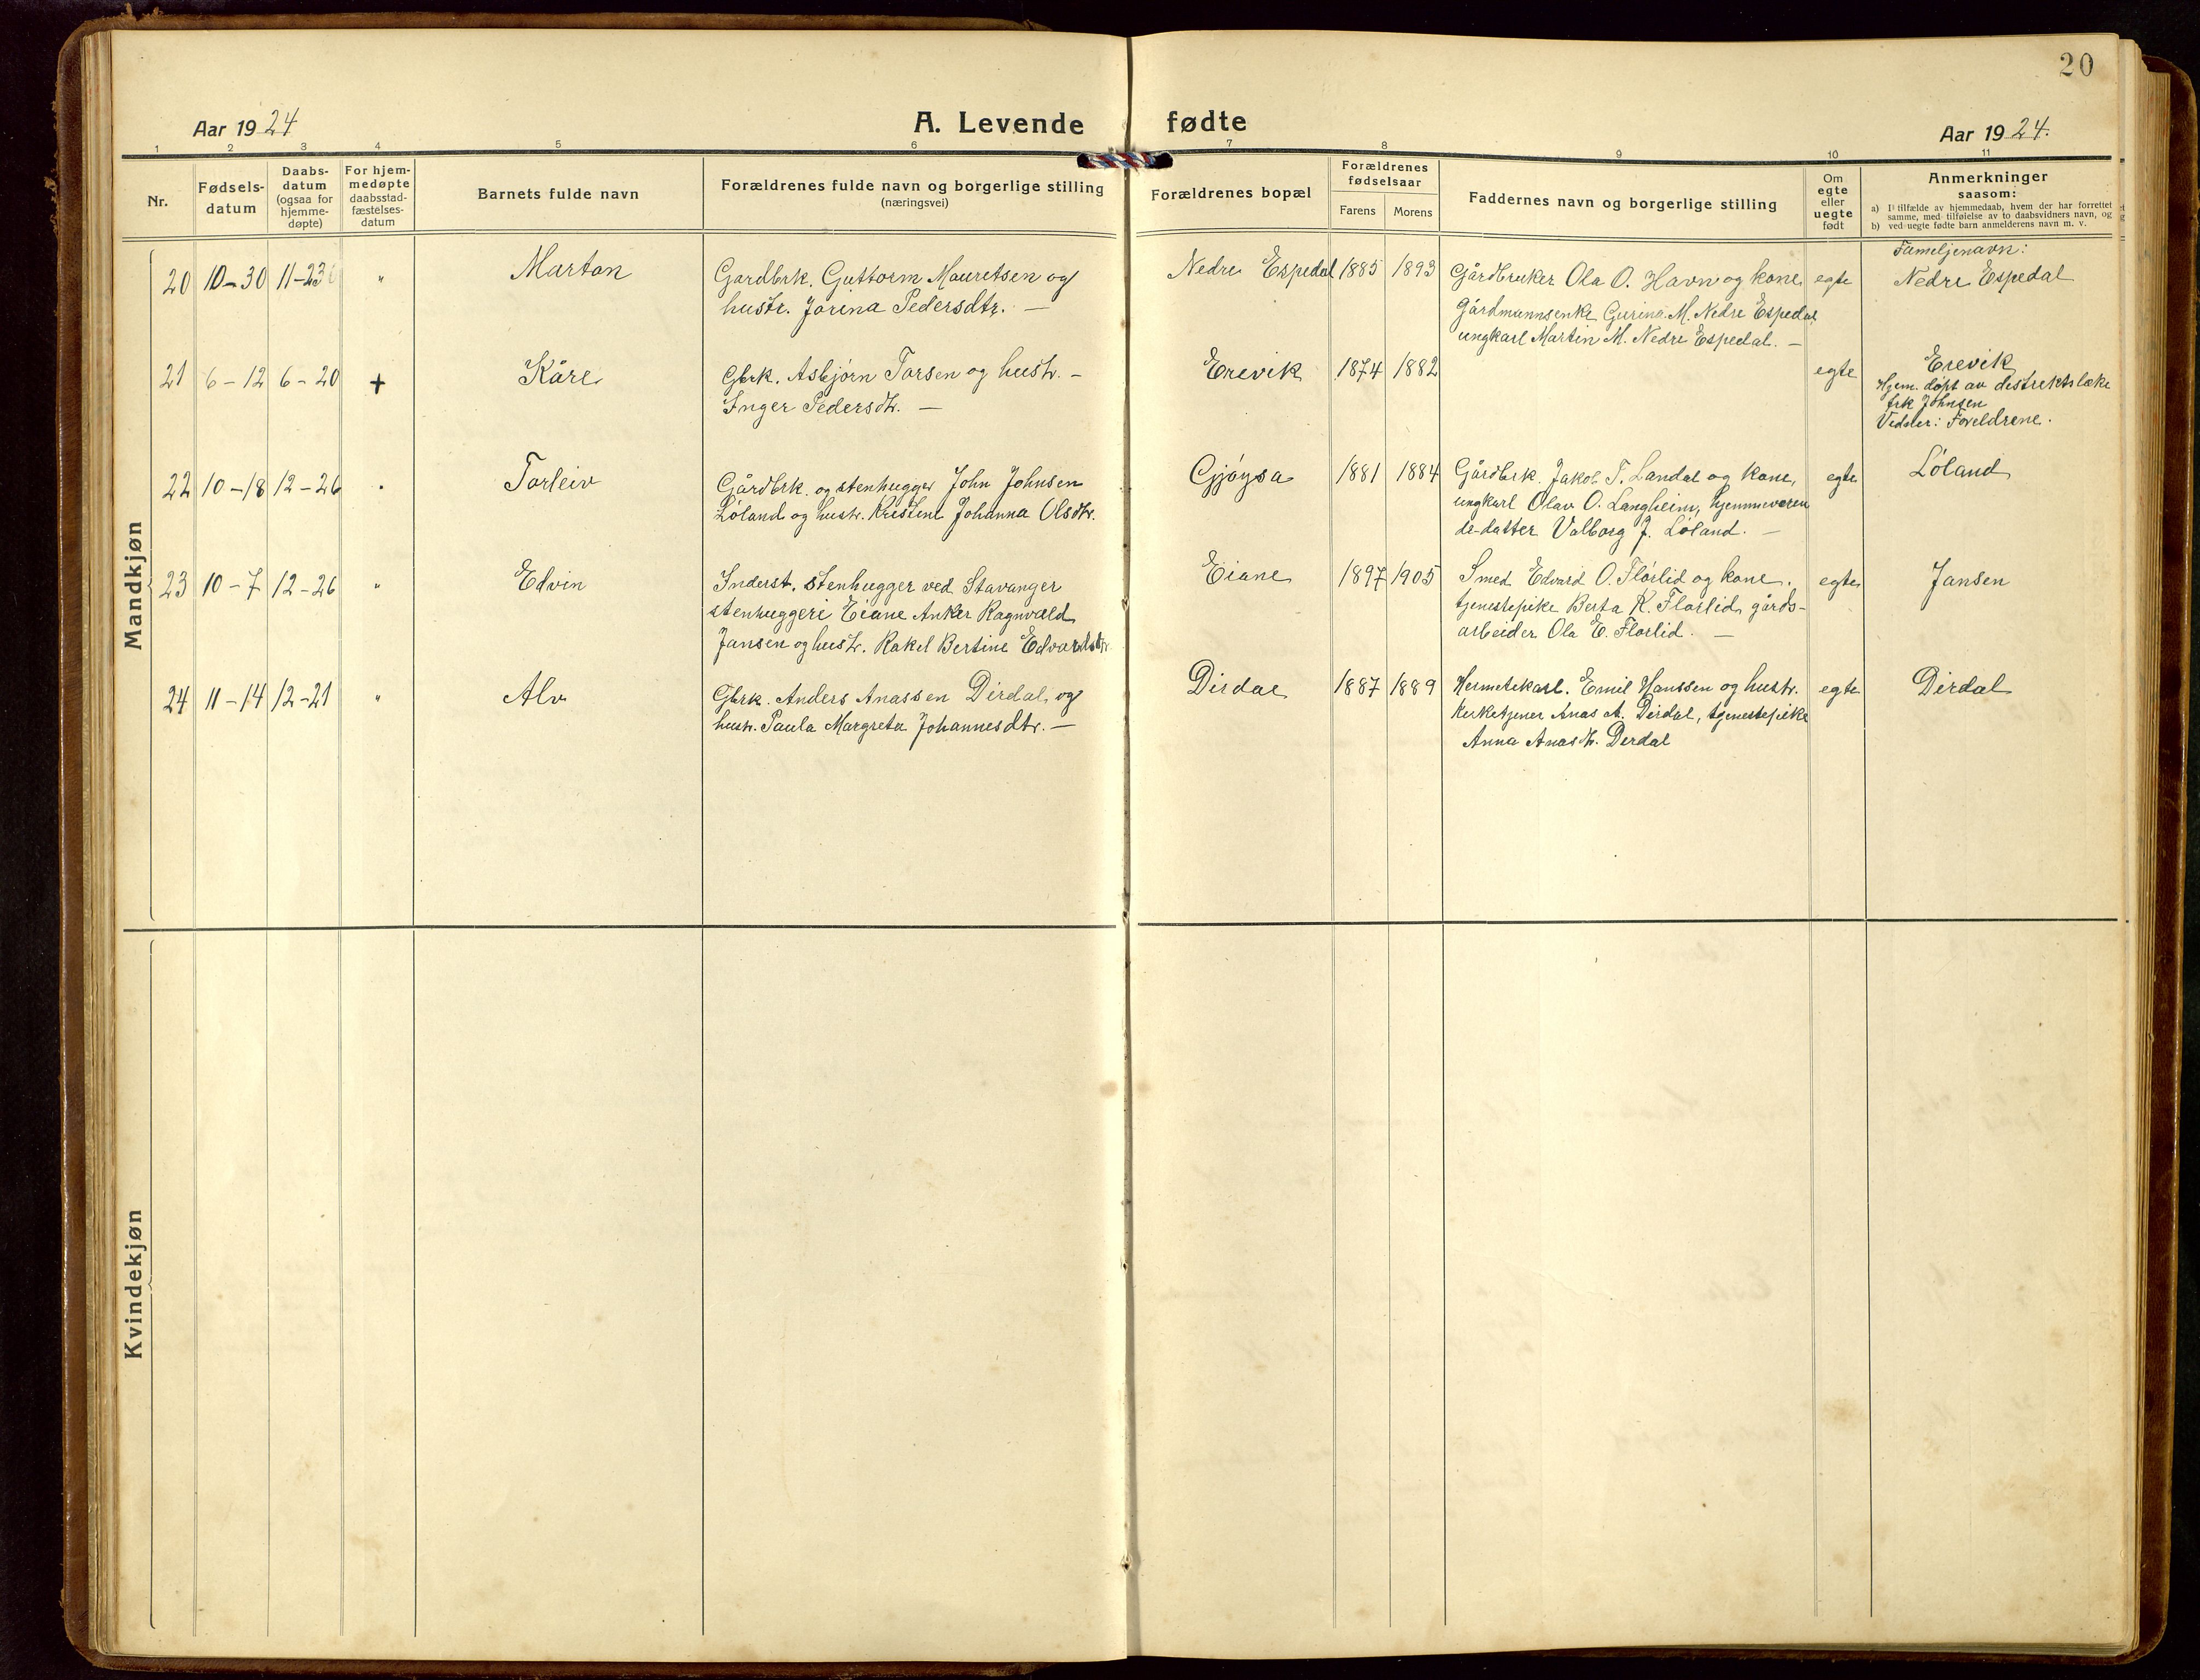 20
Aar 1924
A. Levende fødte
Aar 1924.
1 2 3 4 5 6 7 8 9 10 11
Nr.
Fødsels-
datum
Daabs-
datum
(ogsaa for
hjemme-
døpte)
For hjem-
medøpte
daabsstad-
fæstelses-
datum
Barnets fulde navn
Forældrenes fulde navn og borgerlige stilling
(næringsvei)
Forældrenes bopæl
Forældrenes
fødselsaar
Farens Morens
Faddernes navn og borgerlige stilling
Om
egte
eller
uegte
født
Anmerkninger
saasom:
a) I tilfælde av hjemmedaab, hvem der har forrettet
samme, med tilføielse av to daabsvidners navn, og
b) ved uegte fødte barn anmelderens navn m. v.
Mandkjøn
20 10-30 11-23 "
Marton
Gardbrk. Guttorm Mauretsen og
hustr. Jorina Pedersdtr. —
Nedre Espedal 1885 1893
Gårdbruker Ola O. Havn og kone,
Gårdmannsenke Gurina M. Nedre Espedal,
ungkarl Martin M. Nedre Espedal. —
egte
Fameljenavn:
Nedre Espedal
21 6-12 6-20 +
Kåre
Gbrk. Asbjørn Torsen og hustr. —
Inger Pedersdtr. —
Erevik 1874 1882
egte
Erevik
Hjem. døpt av destrektslæke
frk Johnsen
Vidner: Foreldrene.
22 10-18 12-26 "
Torleiv
Gårdbrk. og stenhugger John Johnsen
Løland og hustr. Kristene Johanna Olsdtr.
Gjøysa 1881 1884
Gårdbrk. Jakob T. Landal og kone,
ungkarl Olav O. Langheim, hjemmeveren
de datter Valborg J. Løland. —
egte
Løland
23 10-7 12-26 "
Edvin
Inderst. Stenhugger ved Stavanger
stenhuggeri Eiane Anker Ragnvald
Jansen og hustr. Rakel Bertine Edvardsdtr.
Eiane 1897 1905
Smed Edvard O. Florlid og kone.
tjenestepike Berta K. Florlid, gårds-
arbeider Ola E. Florlid. —
egte
Jansen
24 11-14 12-21 "
Alv
Gbrk. Anders Anassen Dirdal, og
hustr. Paula Margreta Johannesdtr. —
Dirdal 1887 1889
Hermetekarl. Emil Hanssen og hustr.
Kirketjener Anas A. Dirdal, tjenestepike
Anna Anasdtr. Derdal
egte
Dirdal
Kvindekjøn